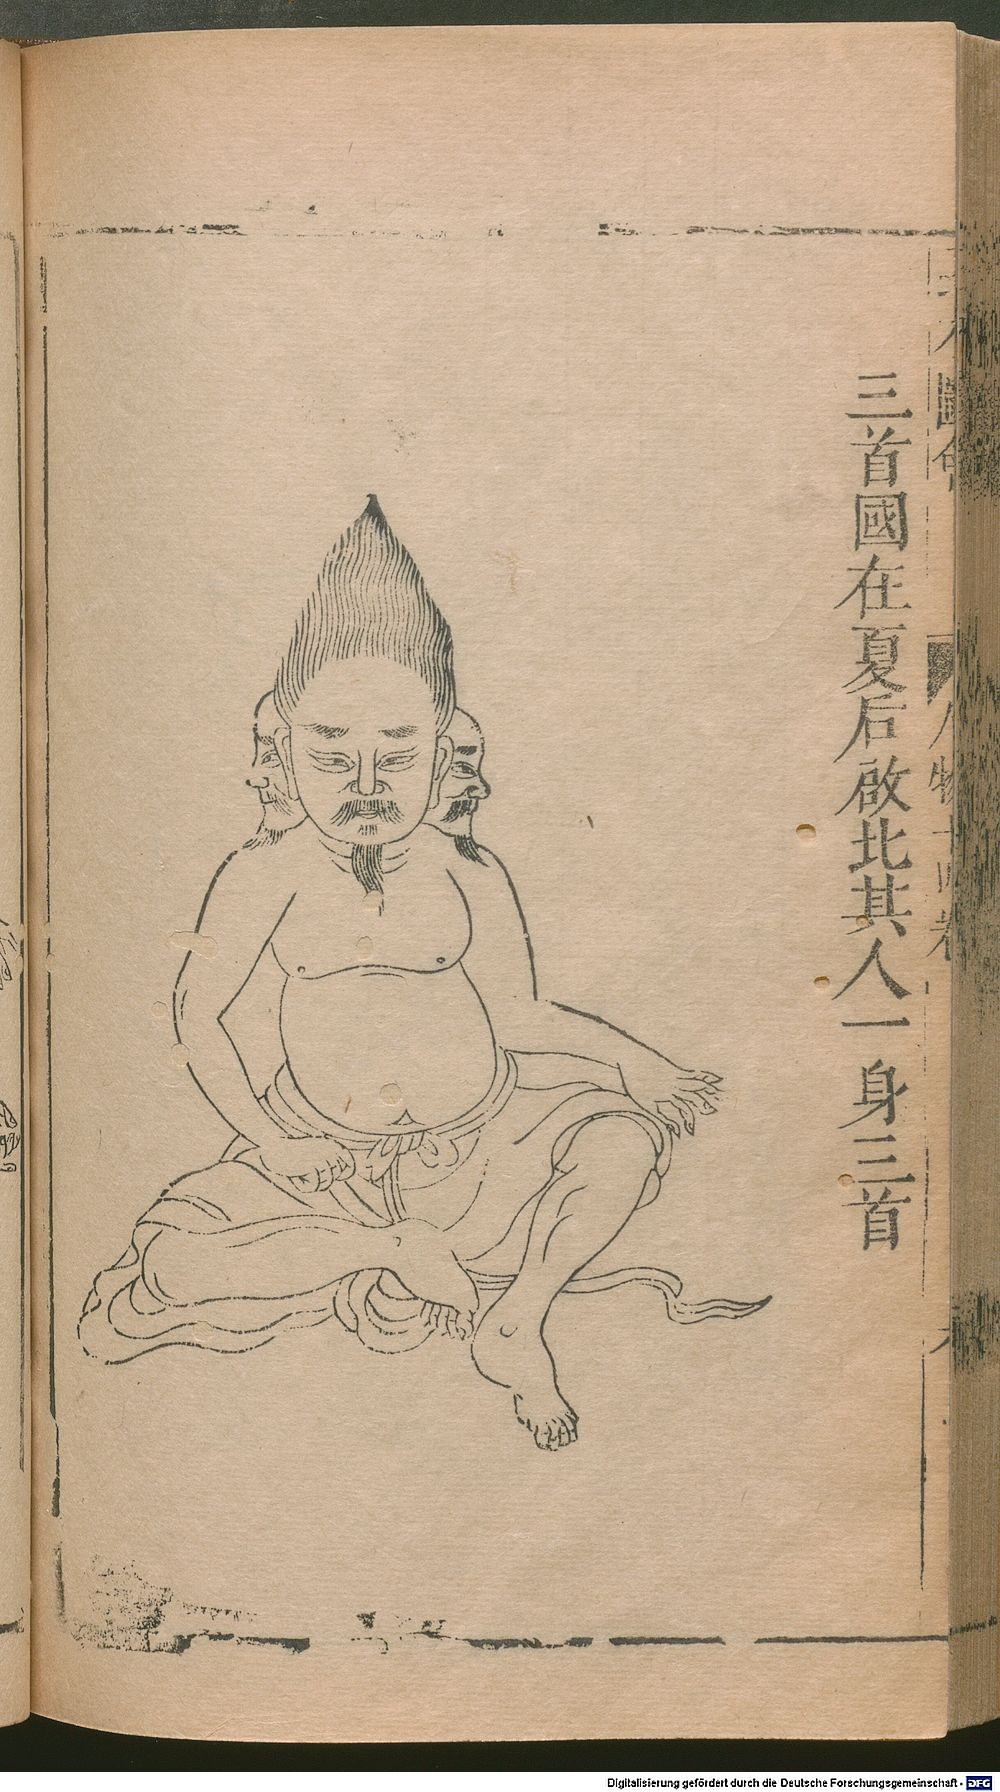 三首國在夏后啟北其人一身三首
圖會
人物十四卷
Digitalisierung gefördert durch die Deutsche Forschungsgemeinschaft - DFG